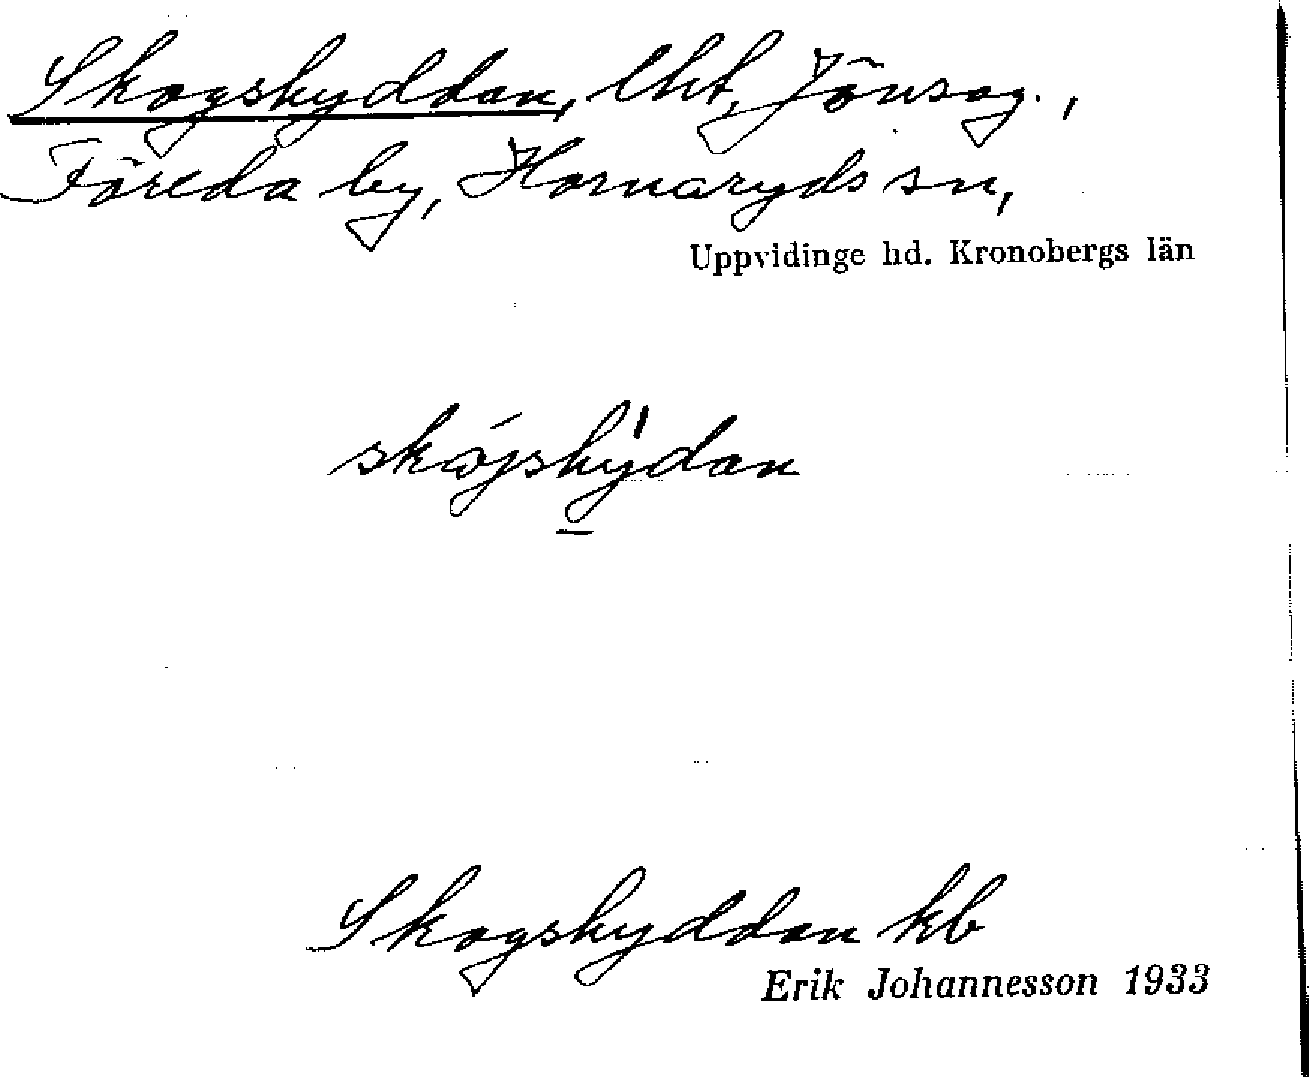 Skogshyddan, lht, Jönsag.,
Föreda by, Hornaryds sn,
Uppvidinge hd. Kronobergs län
Skogshyddan kb
Erik Johannesson 1933